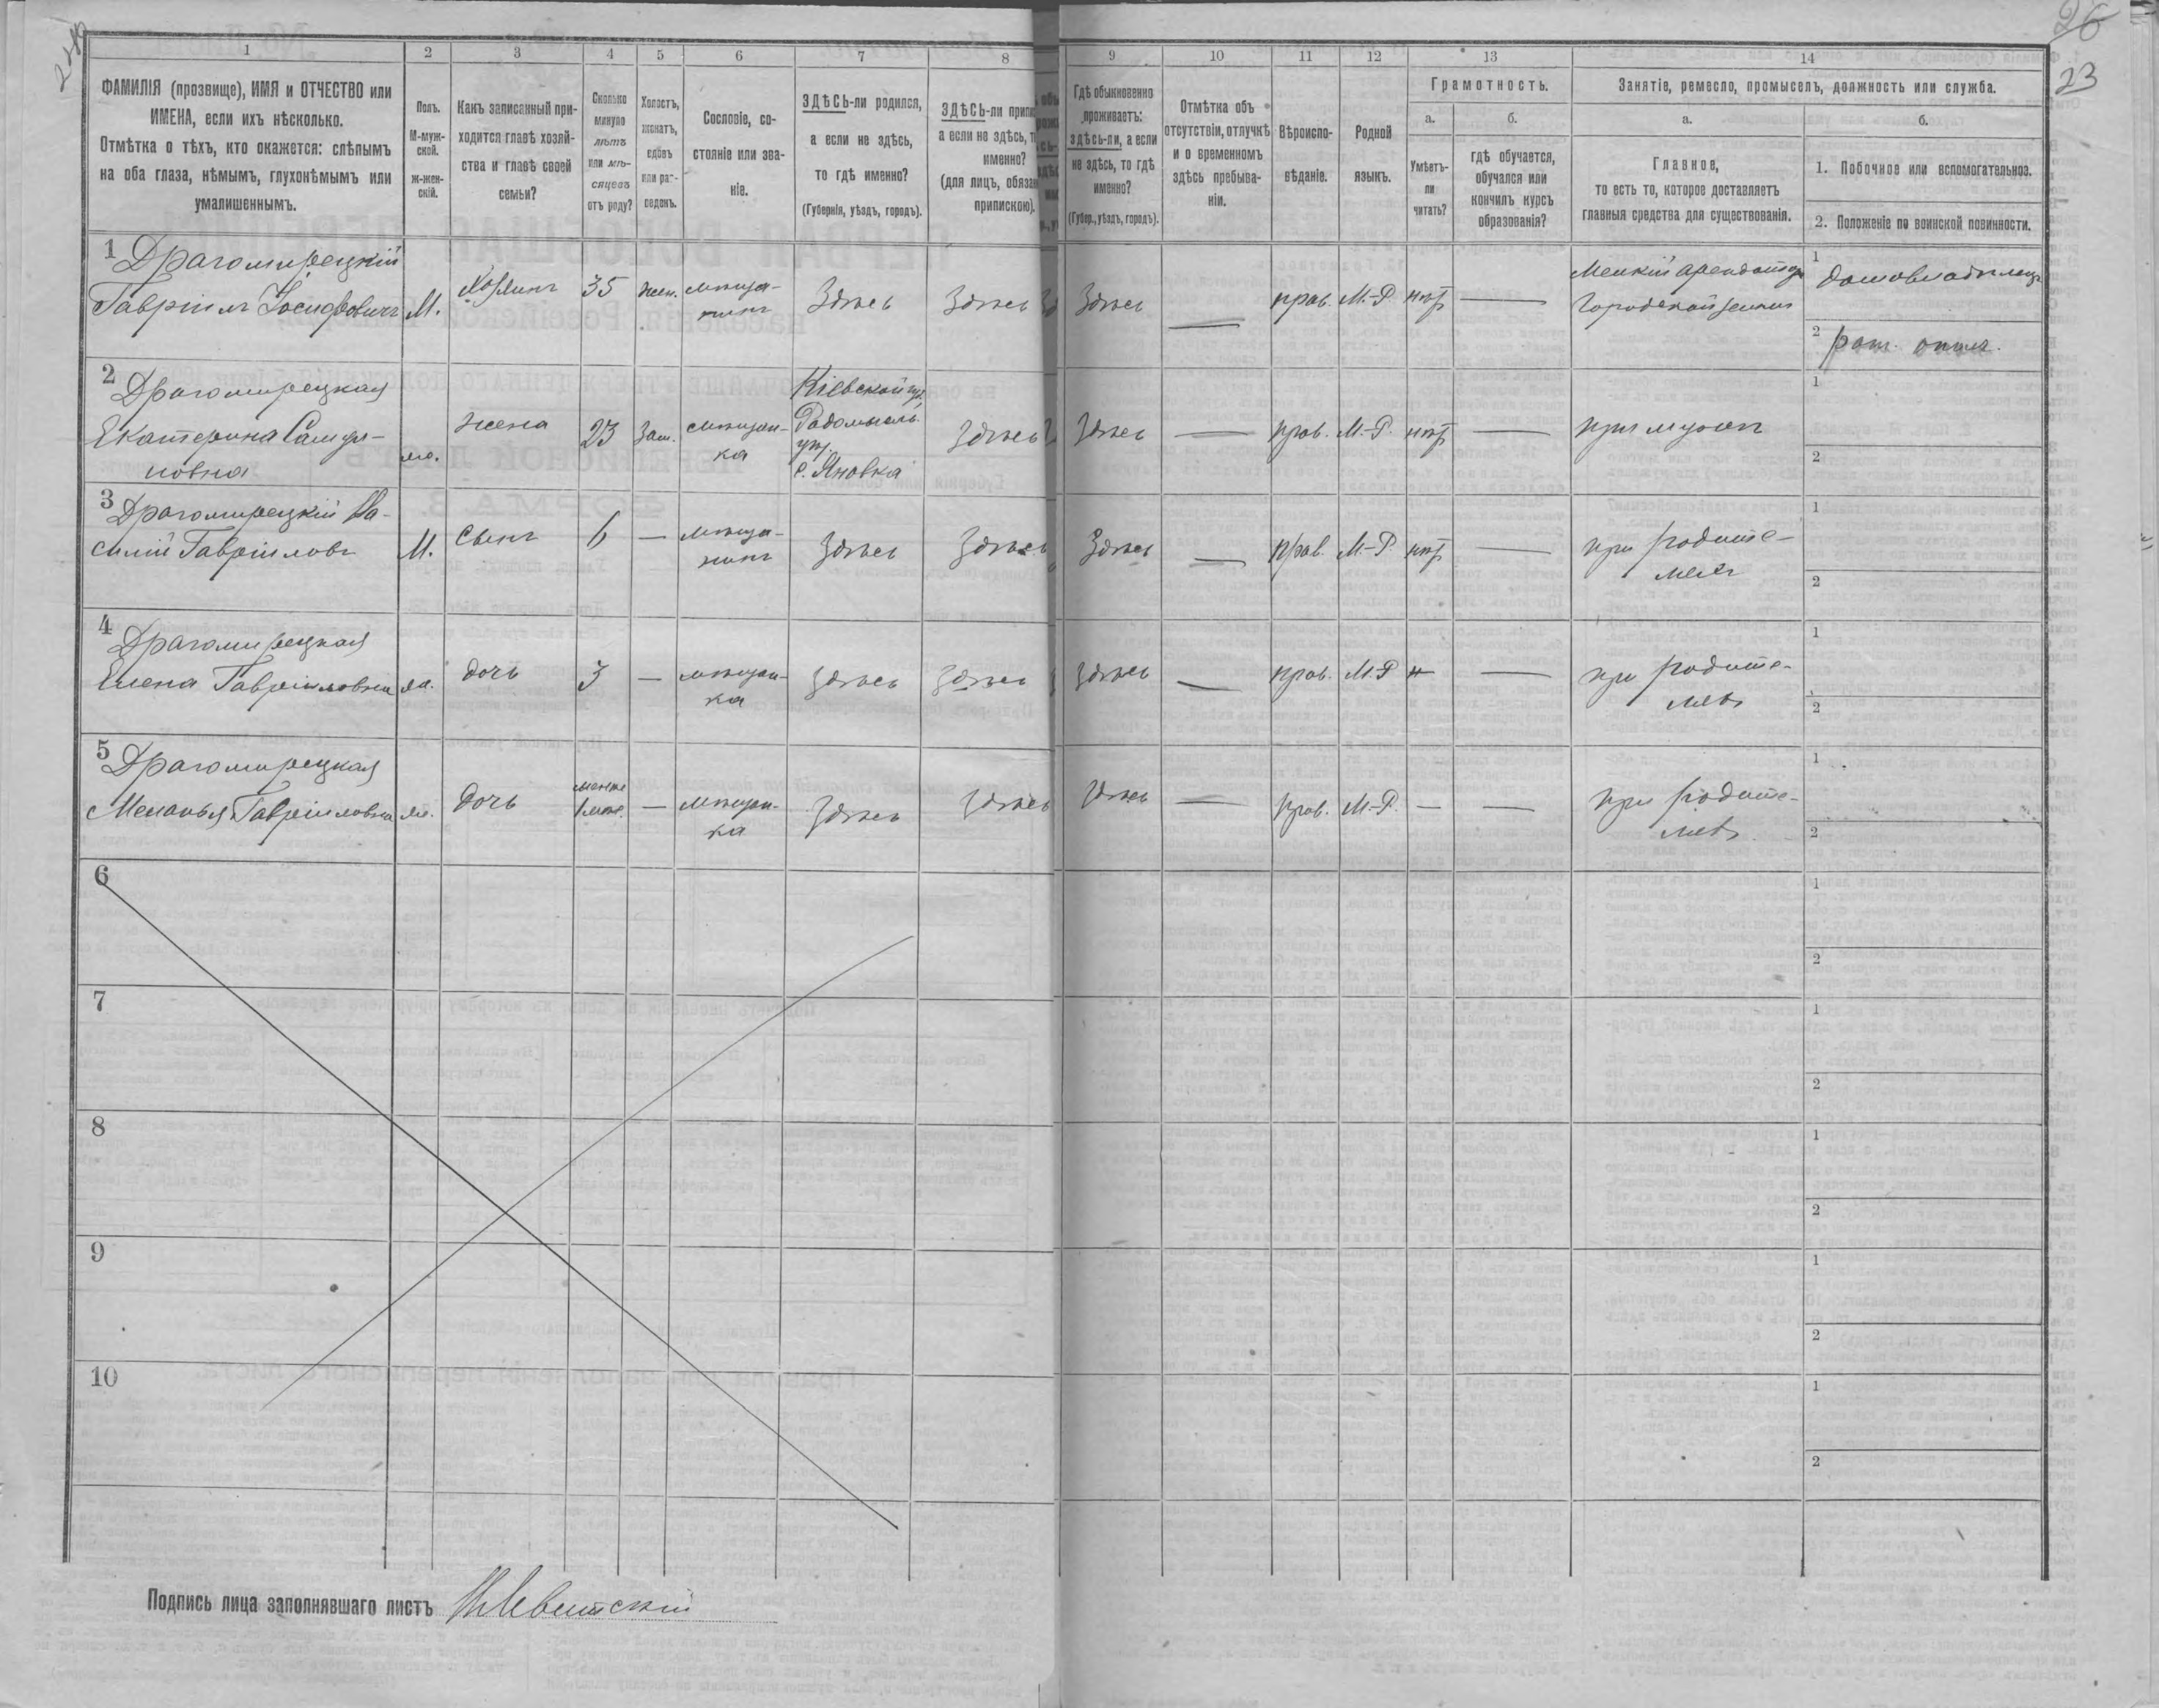 26
23
1
2
3
4
5
6
7
8
9
10
11
12
13
14
ФАМИЛІЯ (прозвище), ИМЯ и ОТЧЕСТВО или
ИМЕНА, если ихъ нѣсколько.
Отмѣтка о тѣхъ, кто окажется: слѣпымъ
на оба глаза, нѣмымъ, глухонѣмымъ или
умалишеннымъ.
Полъ.
М-муж-
ской.
Ж-жен-
скій.
Какъ записанный при-
ходится главѣ хозяй-
ства и главѣ своей
семьи?
Сколько
минуло
лѣтъ
или мѣ-
сяцевъ
отъ роду?
Холостъ,
женатъ,
вдовъ
или раз-
веденъ.
Сословіе, со-
стояніе или зва-
ніе.
ЗДѢСЬ-ли родился,
а если не здѣсь,
то гдѣ именно?
(Губернія, уѣздъ, городъ).
ЗДѢСЬ-ли припис
а если не здѣсь, т
именно?
(для лицъ, обязан
припискою).
Гдѣ обыкновенно
проживаетъ:
здѣсь-ли, а если
не здѣсь, то гдѣ
именно?
(Губер., уѣздъ, городъ).
Отмѣтка объ
отсутствіи, отлучкѣ
и о временномъ
здѣсь пребыва-
ніи.
Вѣроиспо-
вѣданіе.
Родной
языкъ.
Грамотность.
а.
б.
Умѣетъ-
ли
читать?
гдѣ обучается,
обучался или
кончилъ курсъ
образованія?
Занятіе, ремесло, промыселъ, должность или служба.
а.
б.
Главное,
то есть то, которое доставляетъ
главныя средства для существованія.
1. Побочное или вспомогательное.
2. Положеніе по воинской повинности.
1 Драгомирецкій
Гавріилъ Іосифовичъ М. хозяинъ 35 жен. мѣща-
нинъ Здѣсь Здѣсь Здѣсь — прав. М.-Р. нѣтъ —
Мелкій арендаторъ
городской земли
1 домовладѣлецъ
2 рат. опол.
2 Драгомирецкая
Екатерина Самуи-
ловна ж. жена 23 зам. мѣщан-
ка
Кіевской губ.,
Радомысль.
уѣз.
с. Яновка
Здѣсь Здѣсь — прав. М.-Р. нѣтъ — при мужѣ
1
2
3 Драгомирецкій Ва-
силій Гавріиловъ М. сынъ 6 — мѣща-
нинъ Здѣсь Здѣсь Здѣсь — прав. М.-Р. нѣтъ — при родите-
ляхъ
1
2
4 Драгомирецкая
Елена Гавріиловна ж. дочь 3 — мѣщан-
ка Здѣсь Здѣсь Здѣсь — прав. М.-Р. н — при родите-
ляхъ
1
2
5 Драгомирецкая
Меланья Гавріиловна ж. дочь менѣе
1 мѣс. — мѣщан-
ка Здѣсь Здѣсь Здѣсь — прав. М.-Р. — — при родите-
ляхъ
1
2
6
1
2
7
1
2
8
1
2
9
1
2
10
1
2
Подпись лица заполнявшаго листъ Левитскій